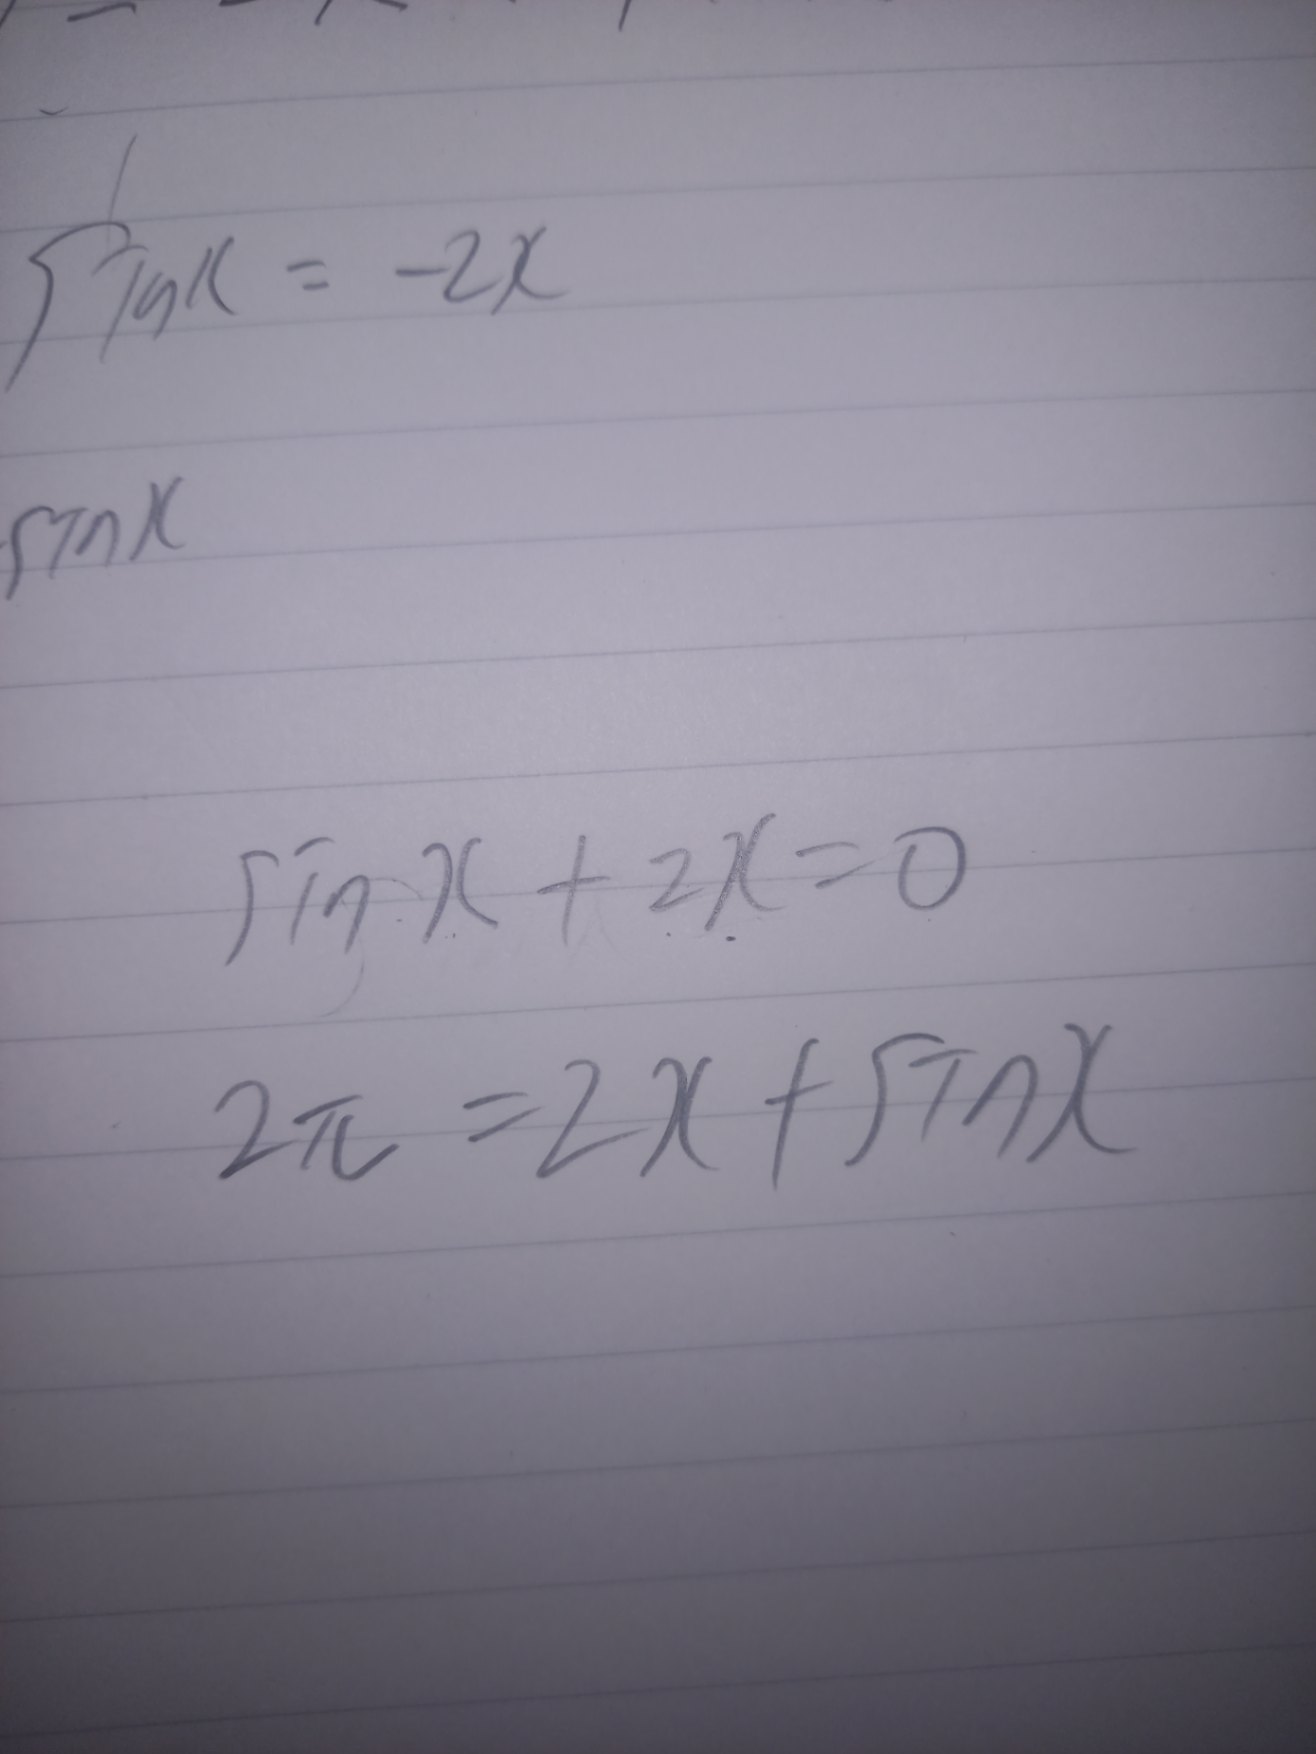 sinx = -2x
sinx
sinx + 2x = 0
2π = 2x + sinx